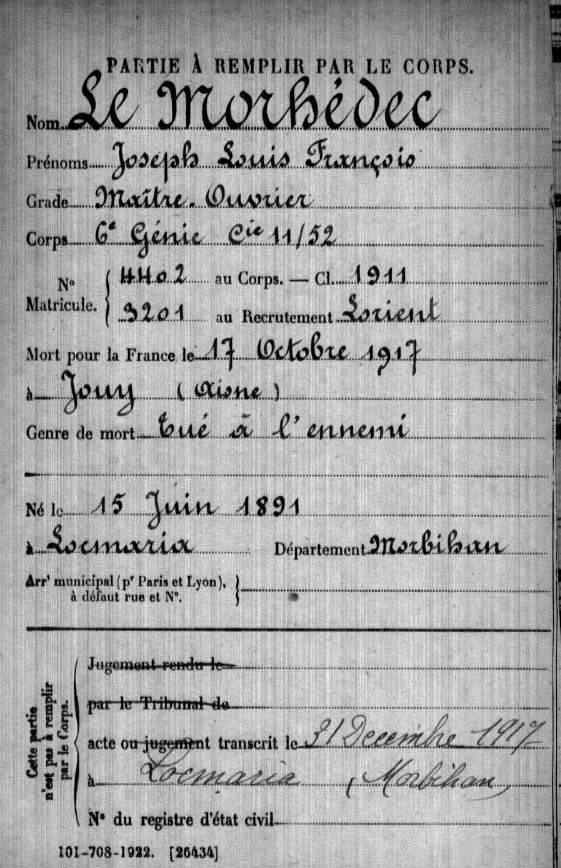 PARTIE À REMPLIR PAR LE CORPS.
Nom Le Morhédec
Prénoms Joseph Louis François
Grade Maître-Ouvrier
Corps 6e Génie Cie 11/52
No Matricule. 4402 au Corps. — Cl. 1911
3201 au Recrutement Lorient
Mort pour la France le 17 Octobre 1917
à Jouy (Aisne)
Genre de mort Tué à l'ennemi
Né le 15 Juin 1891
à Locmaria Département Morbihan
Arrt municipal (pr Paris et Lyon),
à défaut rue et No.
Cette partie
n'est pas à remplir
par le Corps.
Jugement rendu le
par le Tribunal de
acte ou jugement transcrit le 31 Decembre 1917
à Locmaria (Morbihan)
No du registre d'état civil
101-708-1922. [26434]